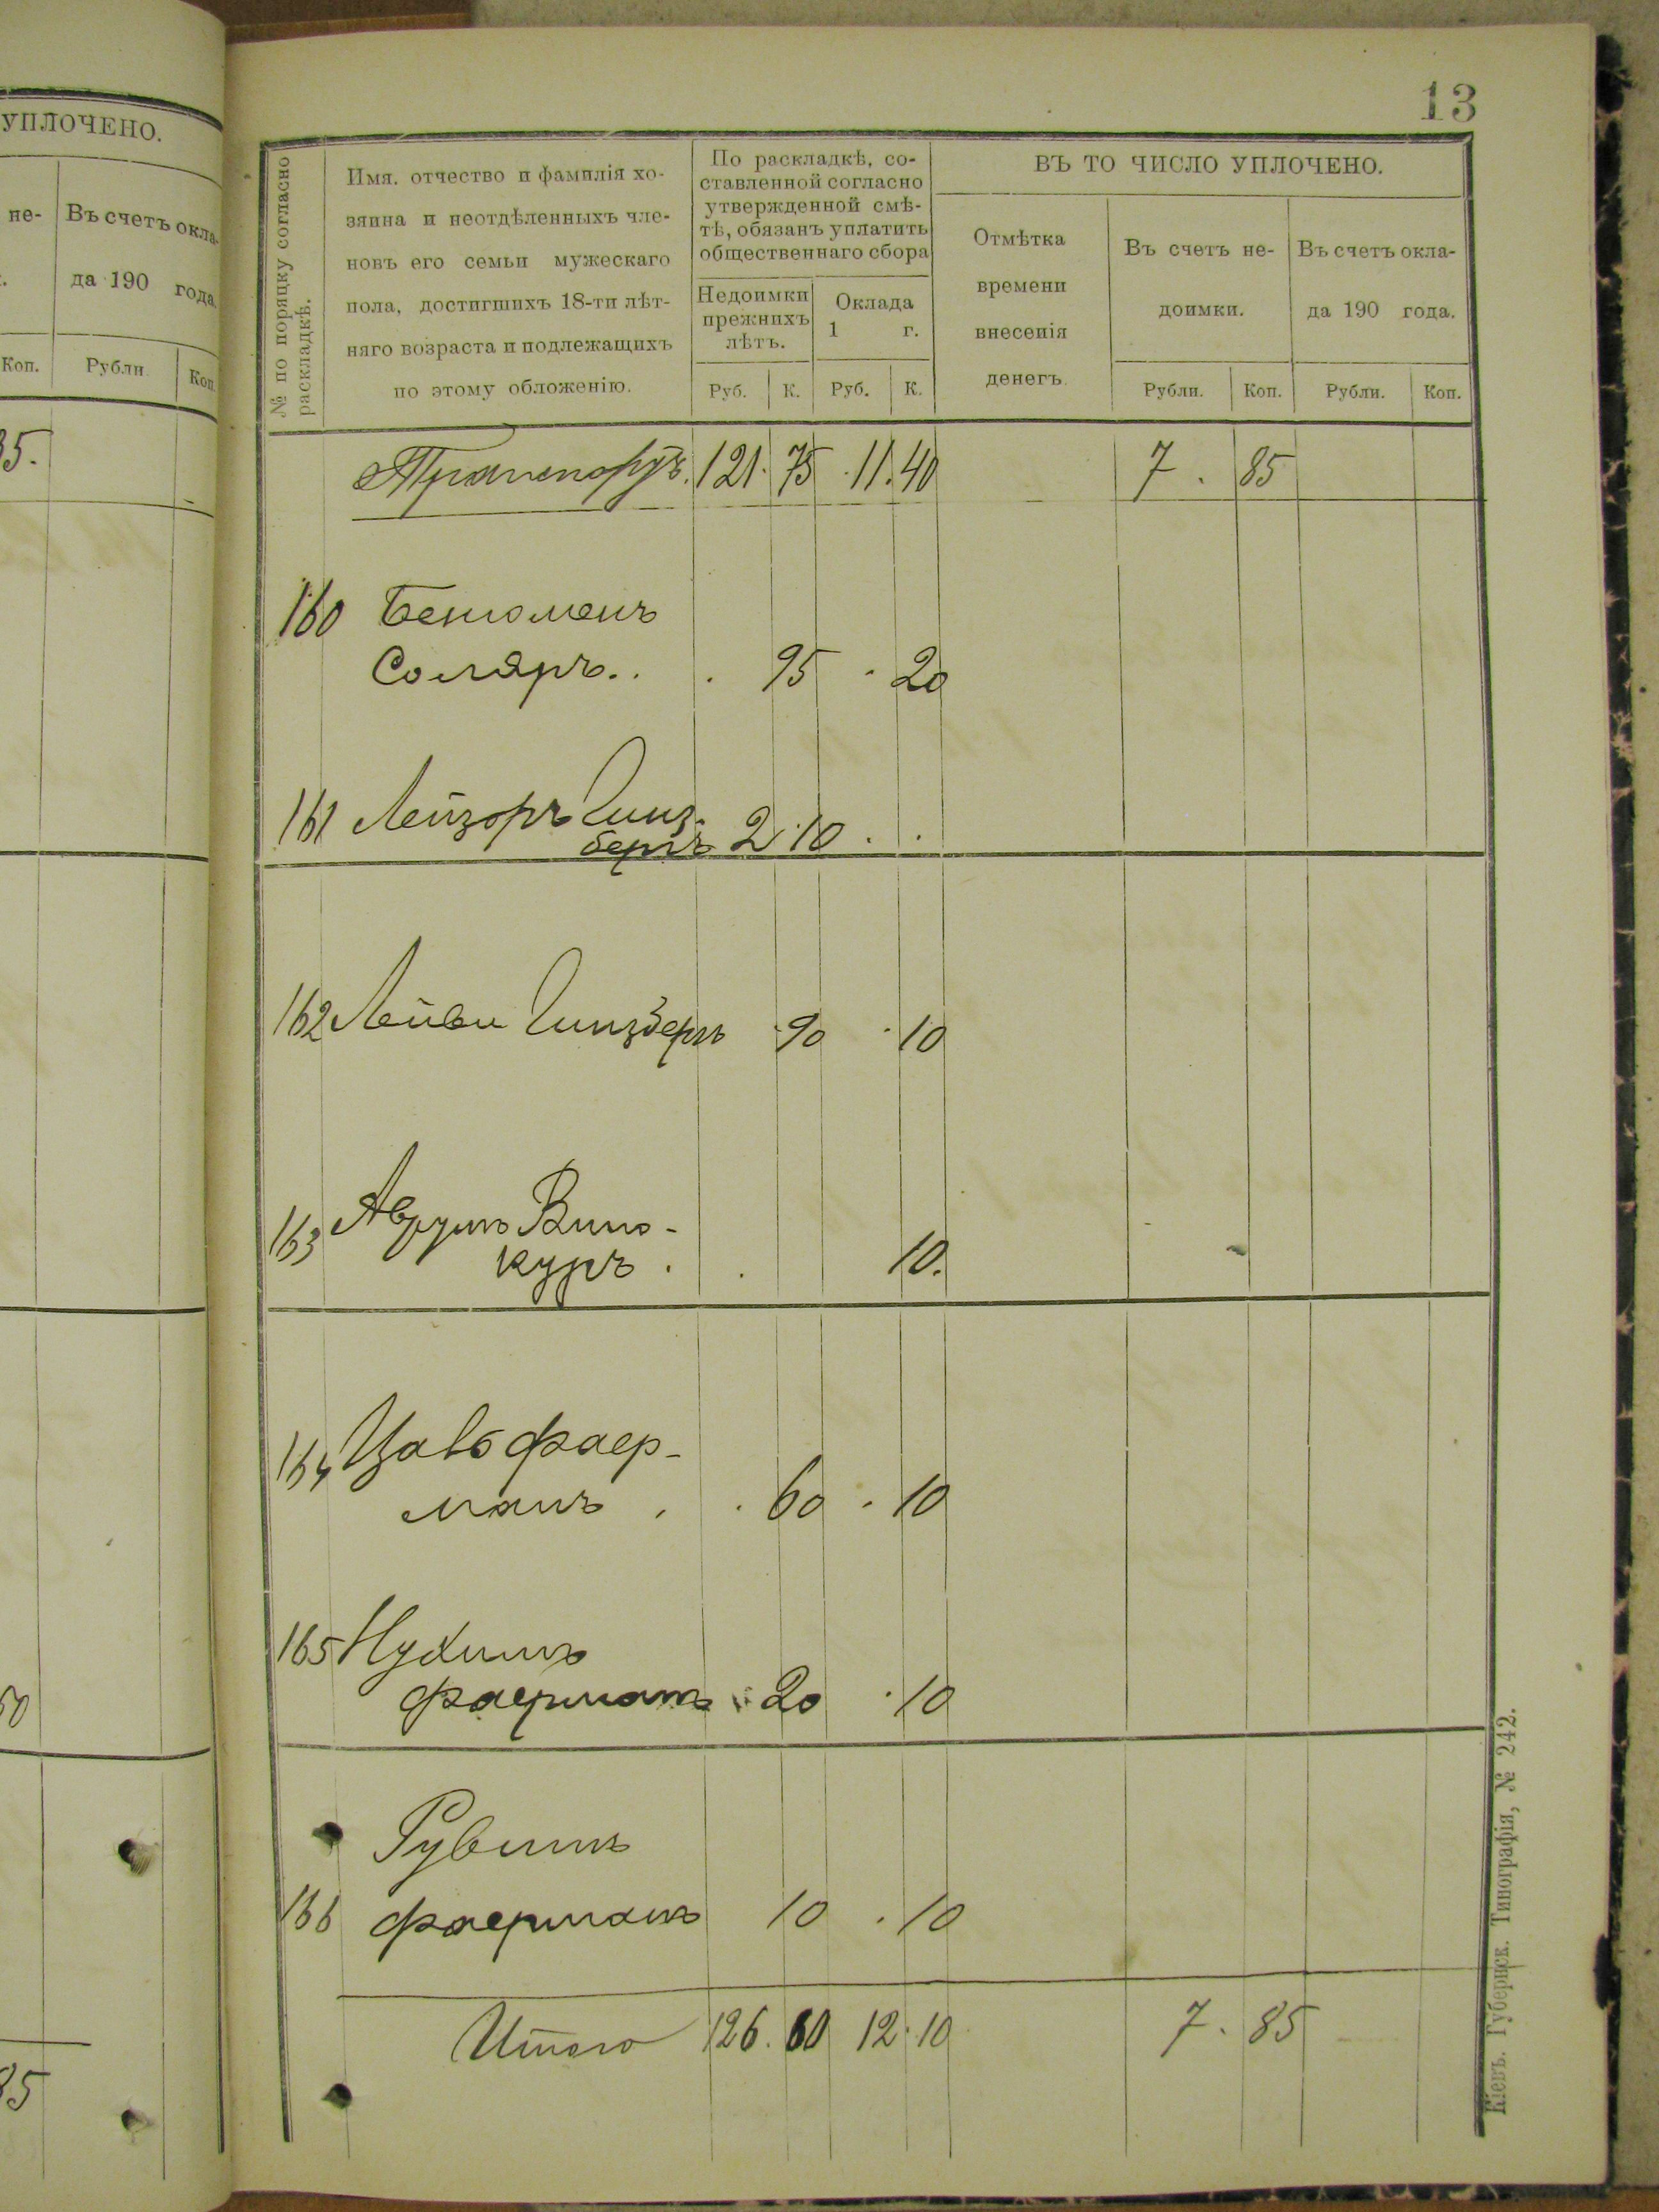 УПЛОЧЕНО.
не-
Въ счетъ окла-
да 190 года.
Коп. Рубли Коп.
35.
50
85
13
№ по порядку согласно
раскладкѣ.
Имя, отчество и фамилія хо-
зяина и неотдѣленныхъ чле-
новъ его семьи мужескаго
пола, достигшихъ 18-ти лѣт-
няго возраста и подлежащихъ
по этому обложенію.
По раскладкѣ, со-
ставленной согласно
утвержденной смѣ-
тѣ, обязанъ уплатить
общественнаго сбора
Недоимки
прежнихъ
лѣтъ.
Оклада
1 г.
Руб. К. Руб. К.
ВЪ ТО ЧИСЛО УПЛОЧЕНО.
Отмѣтка
времени
внесенія
денегъ.
Въ счетъ не-
доимки.
Въ счетъ окла-
да 190 года.
Рубли. Коп. Рубли. Коп.
Транспортъ. 121. 75 . 11. 40 7 . 85
160 Беніоменъ
Соляръ . . . 95 . 20
161 Лейзоръ Гинз-
бергъ 2 . 10 . .
162 Лейви Гинзбергъ . 90 . 10
163 Аврумъ Вино-
куръ . . 10.
164 Цаль Фаер-
манъ . . 60 . 10
165 Нухимъ
Фаерманъ . 20 . 10
Рувинъ
166 Фаерманъ 10 . 10
Итого 126. 60 12. 10 7. 85
Кіевъ. Губернск. Типографія, № 242.